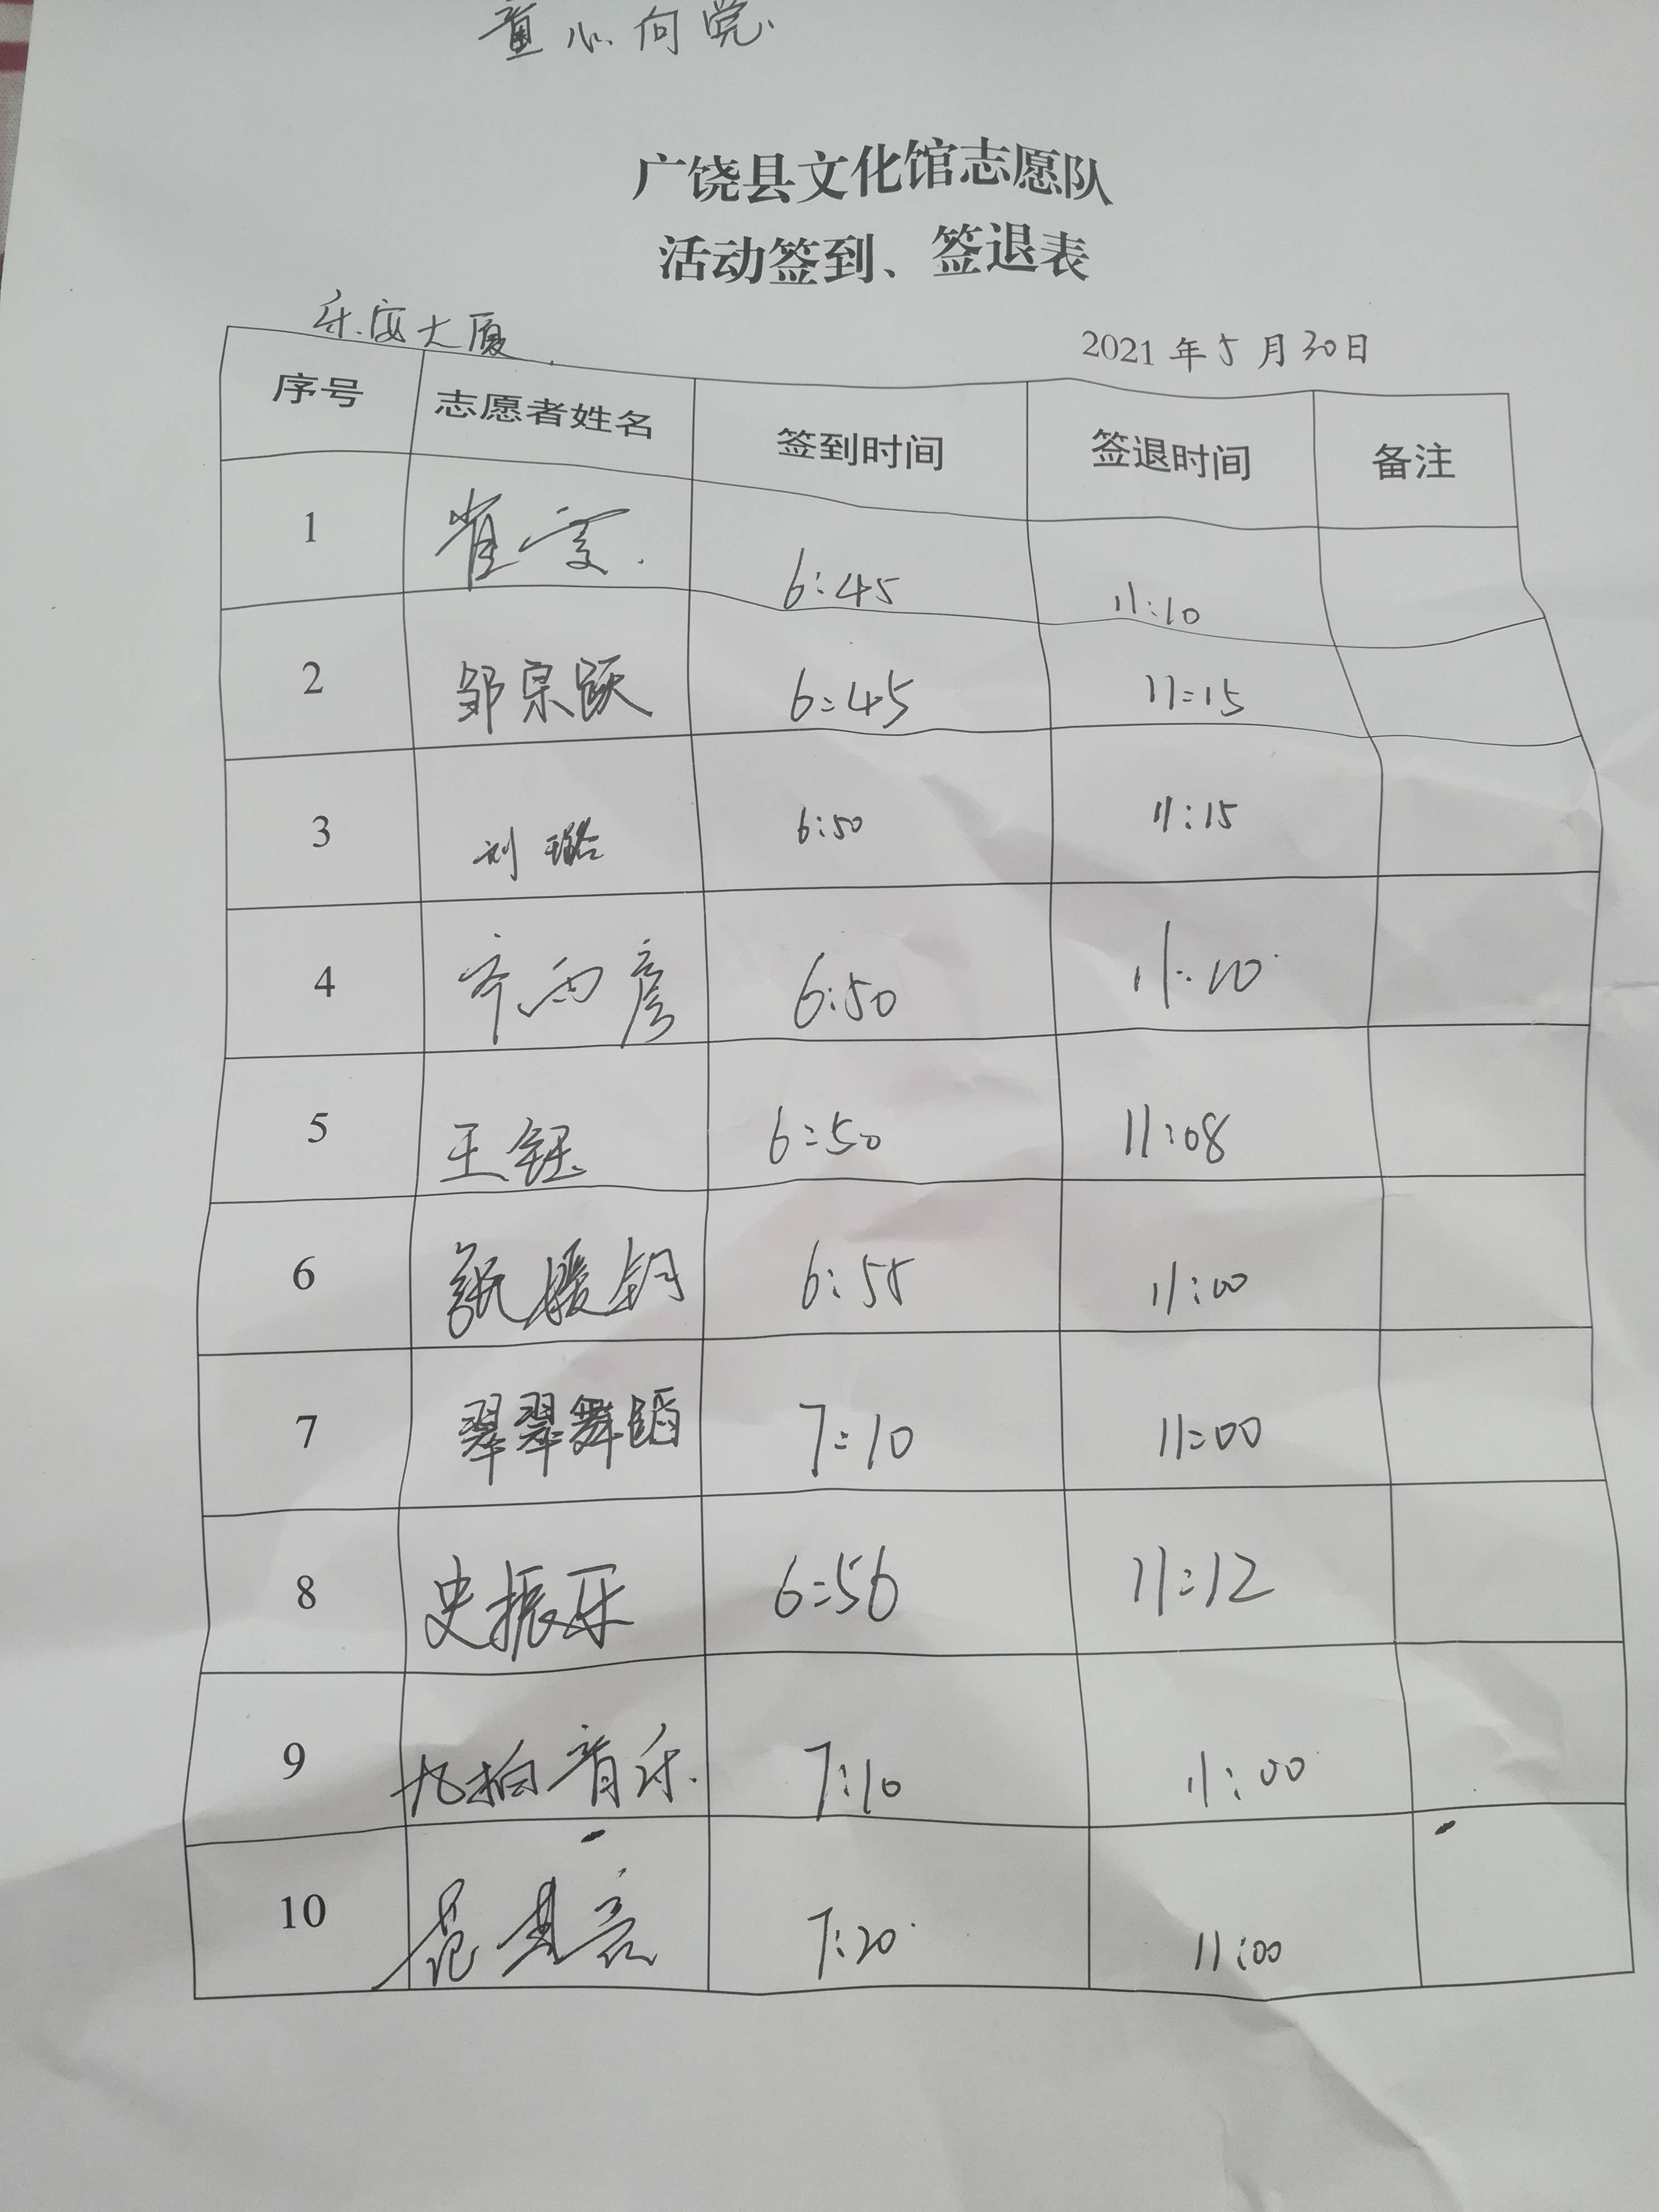 童心向党
广饶县文化馆志愿队
活动签到、签退表
乐安大厦
2021年5月30日
序号 志愿者姓名 签到时间 签退时间 备注
1 崔雯 6:45 11:10
2 邹宗跃 6:45 11:15
3 刘璐 6:50 11:15
4 齐雨彦 6:50 11:10
5 王钰 6:50 11:08
6 6:55 11:00
7 翠翠舞蹈 7:10 11:00
8 史振乐 6:56 11:12
9 九拍音乐 7:10 11:00
10 7:20 11:00